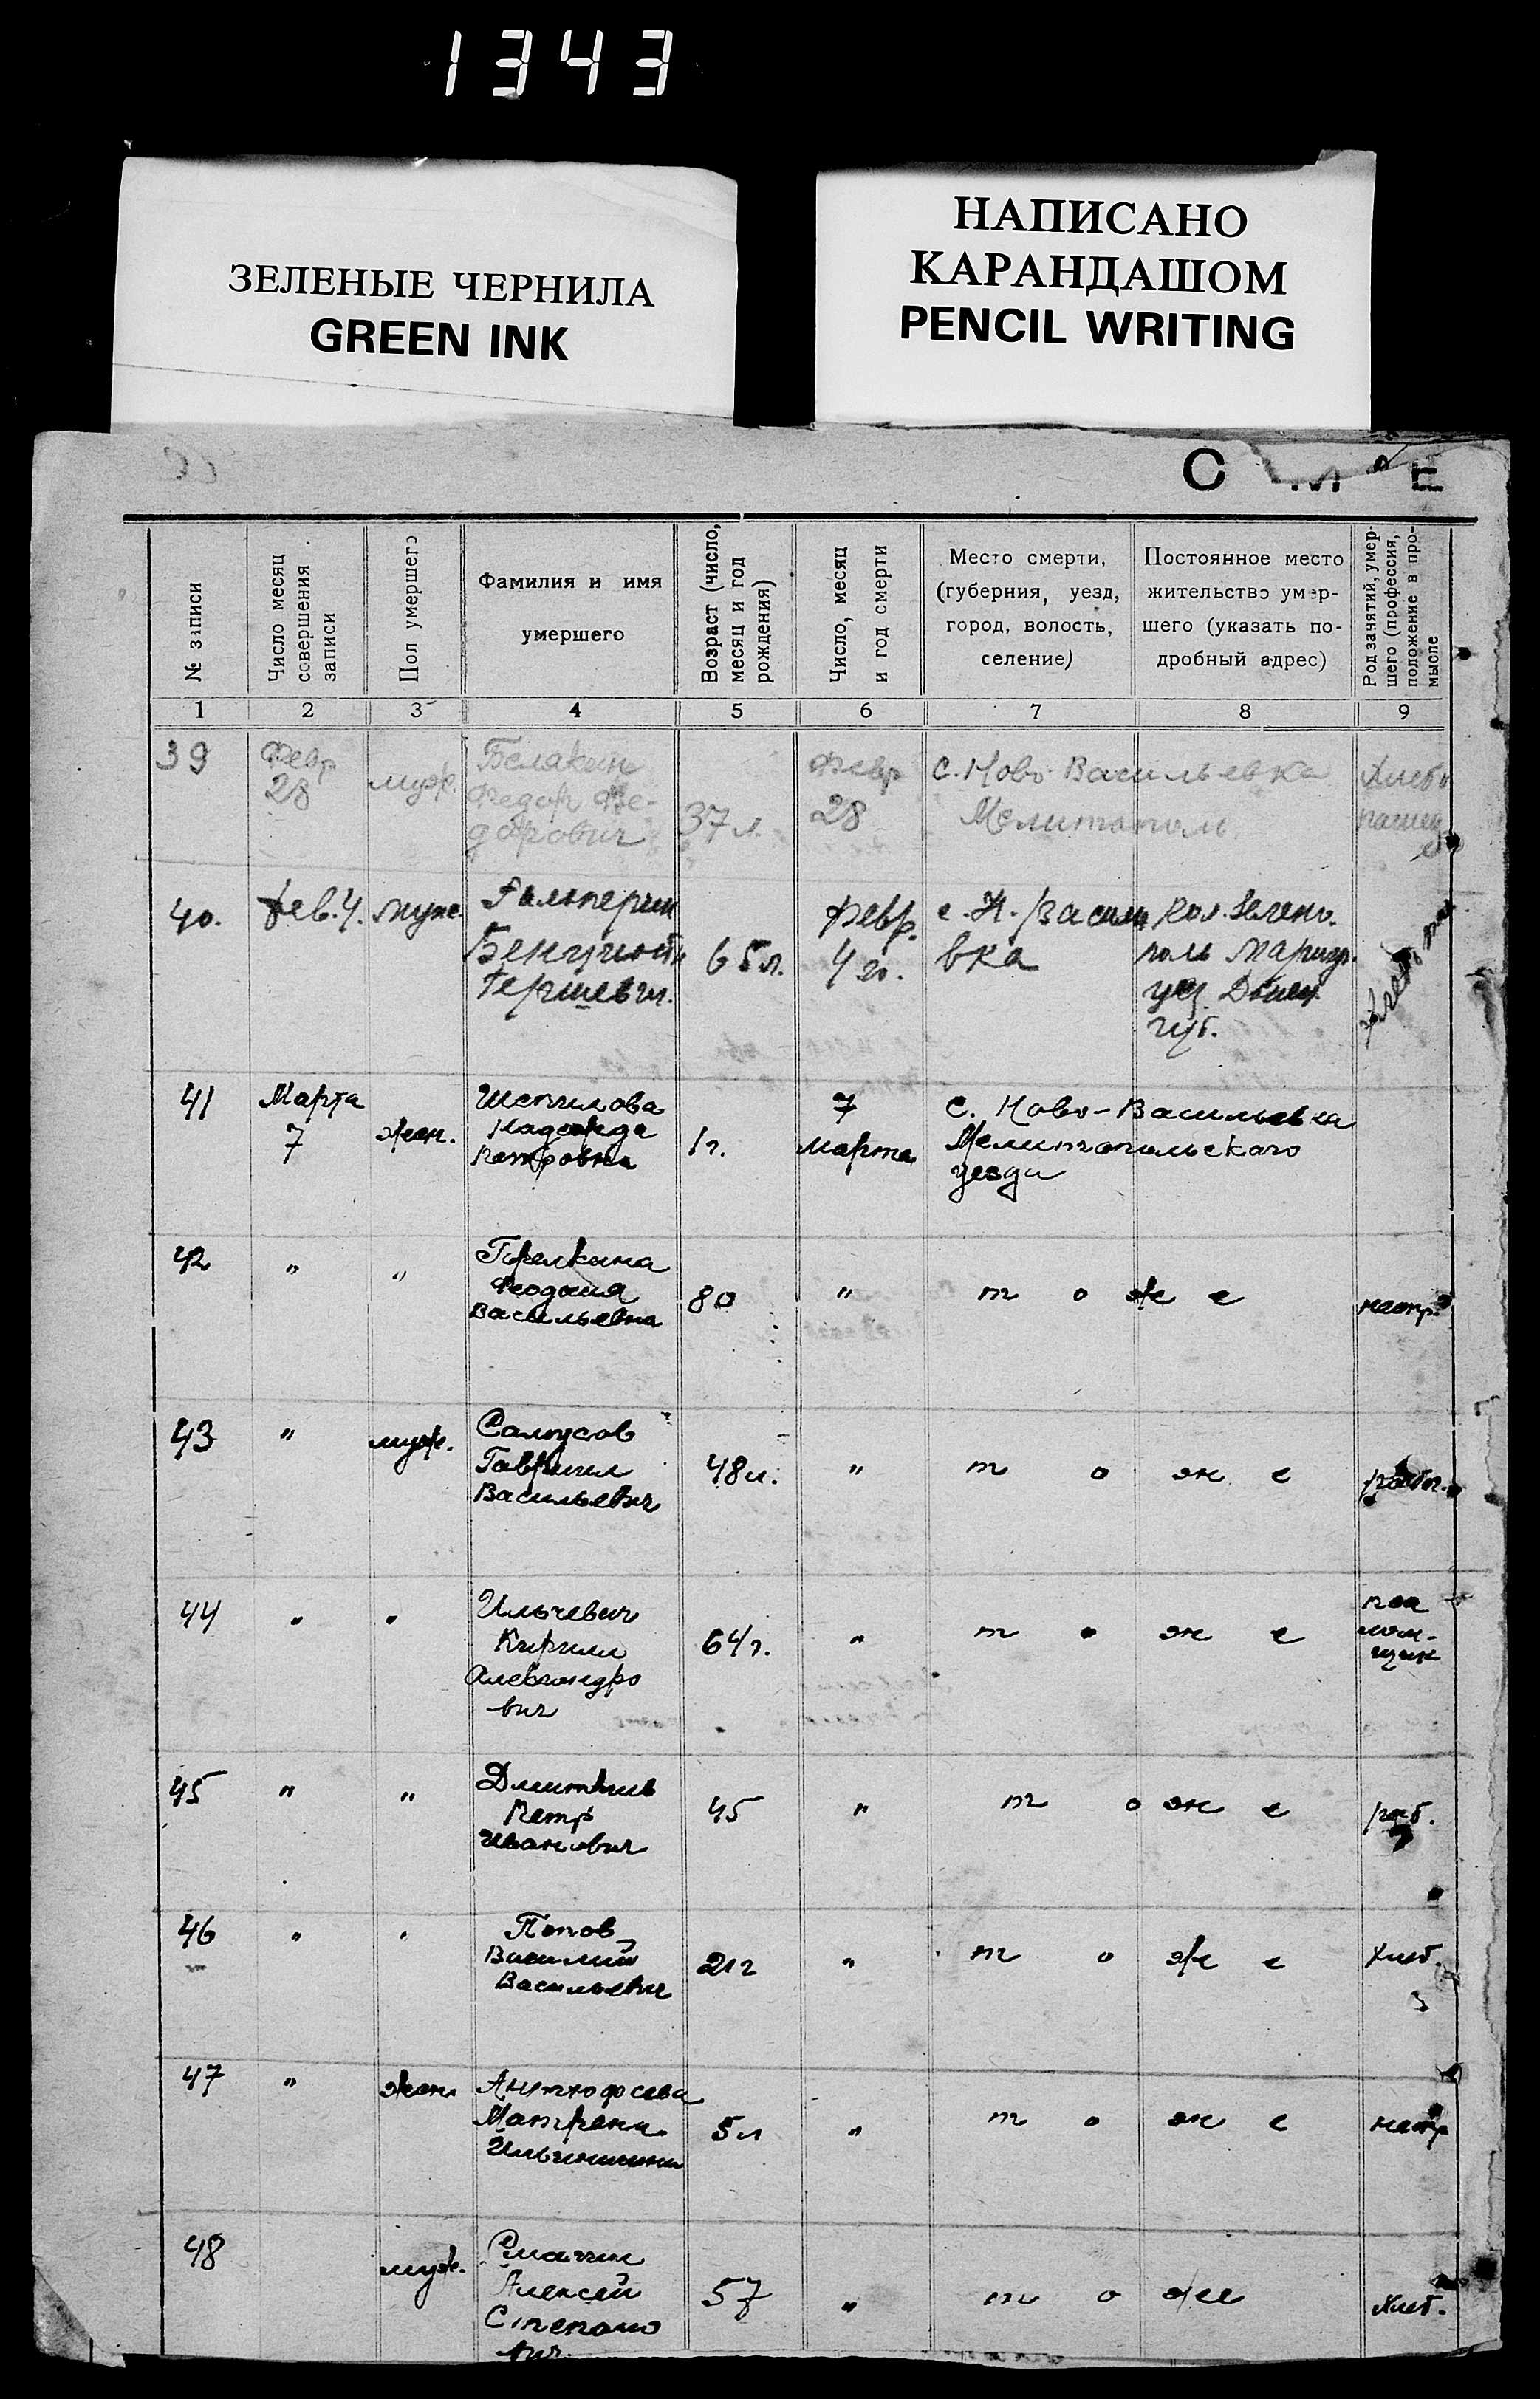 1343
ЗЕЛЕНЫЕ ЧЕРНИЛА
GREEN INK
НАПИСАНО
КАРАНДАШОМ
PENCIL WRITING
С М Е
№ записи
Число месяц
совершения
записи
Пол умершего
Фамилия и имя
умершего
Возраст (число,
месяц и год
рождения)
Число, месяц
и год смерти
Место смерти,
(губерния, уезд,
город, волость,
селение)
Постоянное место
жительство умер-
шего (указать по-
дробный адрес)
Род занятий, умер-
шего (профессия,
положение в про-
мысле
1 2 3 4 5 6 7 8 9
39
Февр
28
муж.
Белякин
Федор Фе-
дорович
37 л.
Февр
28
с. Ново Васильевка
Мелитополь
Хлебо
пашец
40.
Фев. 4.
муж.
Гальперин
Гершевич.
65 л.
Февр.
4 го.
с. Н. Василь
вка
кол. Зелено.
поль Мариуп.
уез. Донец.
губ.
41
Марта
7
жен.
Шепилова
Надежда
Петровна
1 г.
7
марта
с. Ново-Васильевка
Мелитопольского
уезда
42
"
"
Горелкина
Феодосия
Васильевна
80
"
т о ж е
нетр.
43
"
муж.
Самусов
Гавриил
Васильевич
48 л.
"
т о ж е
работ.
44
"
"
Ильчевич
Кирилл
Александро
вич
64 г.
"
т о ж е
пса
лом-
щик
45
"
"
Петр
Иванович
45
"
т о ж е
раб.
46
"
"
Попов
Василий
Васильевич
21 г
"
т о ж е
Хлеб.
47
"
жен
Матрена
Ильинишна
5 л
"
т о ж е
нетр
48
муж.
Алексей
Степано
вич.
57
"
т о же
хлеб.